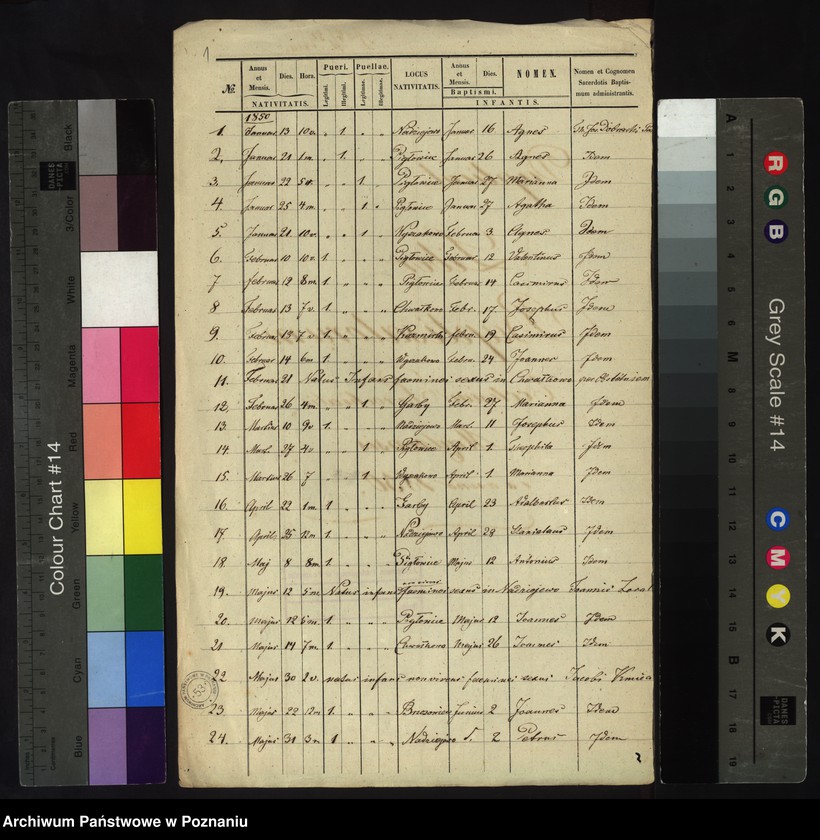 1
№.
Annus et Mensis.
Dies.
Hora.
NATIVITATIS.
Pueri.
Legitimi.
Illegitimi.
Puellae.
Legitimae.
Illegitimae.
LOCUS NATIVITATIS.
Annus et Mensis.
Dies.
Baptismi.
NOMEN.
INFANTIS.
Nomen et Cognomen Sacerdotis Baptismum administrantis.
1850
1. Januar 13 10 „ 1. „ „ Nadziejewo Januar 16 Agnes
2. Januar 21 1m. „ 1. „ „ Pigłowice Januar 26 Agnes Idem
3. Januar 22 5 „ „ 1 „ Pigłowice Januar 27 Marianna Idem
4. Januar 25 4m. „ „ 1 „ Pigłowice Januar 27 Agatha Idem
5. Januar 21 10v. „ „ 1 „ Februar 3. Agnes Idem
6. Februar 10 10v. 1. „ „ „ Pigłowice Februar 12 Valentinus Idem
7 Februar 12 8m. 1. „ „ „ Pigłowice Februar 14 Casimirus Idem
8 Februar 13 7v. 1. „ „ „ Chwałkowo Febr. 17. Josephus Idem
9. Februar 7 1 „ „ „ Februar 19 Casimirus Idem
10. Februar 14 6m 1. „ „ „ Februar 24 Joannes Idem
11. Februar 21 Natus Infans foeminei sexus in Chwałkowo
12. Februar 26 4m. „ „ 1 „ Garby Febr. 27 Marianna Idem
13. Martius 10 9v 1. „ „ „ Nadziejewo Mart. 11 Josephus Idem
14. Mart. 27 4v „ „ 1 „ Pigłowice April 1. Theophila Idem
15. Martius 26 7 „ „ 1 „ April 1 Marianna Idem
16. April 22 1m. 1 „ „ „ Garby April 23 Adalbertus Idem
17. April 25 12m. 1. „ „ „ Nadziejewo April 28 Stanislaus Idem
18. Maj 8 8m. 1. „ „ „ Pigłowice Majus 12 Antonius Idem
19. Majus 12 5m. Natus infans non vivus foeminei sexus in Nadziejewo Joannis
20. Majus 12 5m. 1. „ „ „ Pigłowice Majus 12 Joannes Idem
21. Majus 14 7m. 1. „ „ „ Chwałkowo Majus 26 Joannes Idem
22 Majus 30 2v. natus infans non vivens foeminei sexus Jacobi
23. Majus 22 12m 1. „ „ „ Junius 2 Joannes Idem
24. Majus 31 3m 1 „ „ „ Nadziejewo 2 Petrus Idem
2
53
Colour Chart #14
Black
3/Color
White
Magenta
Red
Yellow
Green
Cyan
Blue
DANES PICTA
Centimetres
Inches
Grey Scale #14
R
G
B
C
M
Y
K
A
1
2
3
4
5
6
M
8
9
10
11
12
13
14
15
B
17
18
19
DANES PICTA
Archiwum Państwowe w Poznaniu